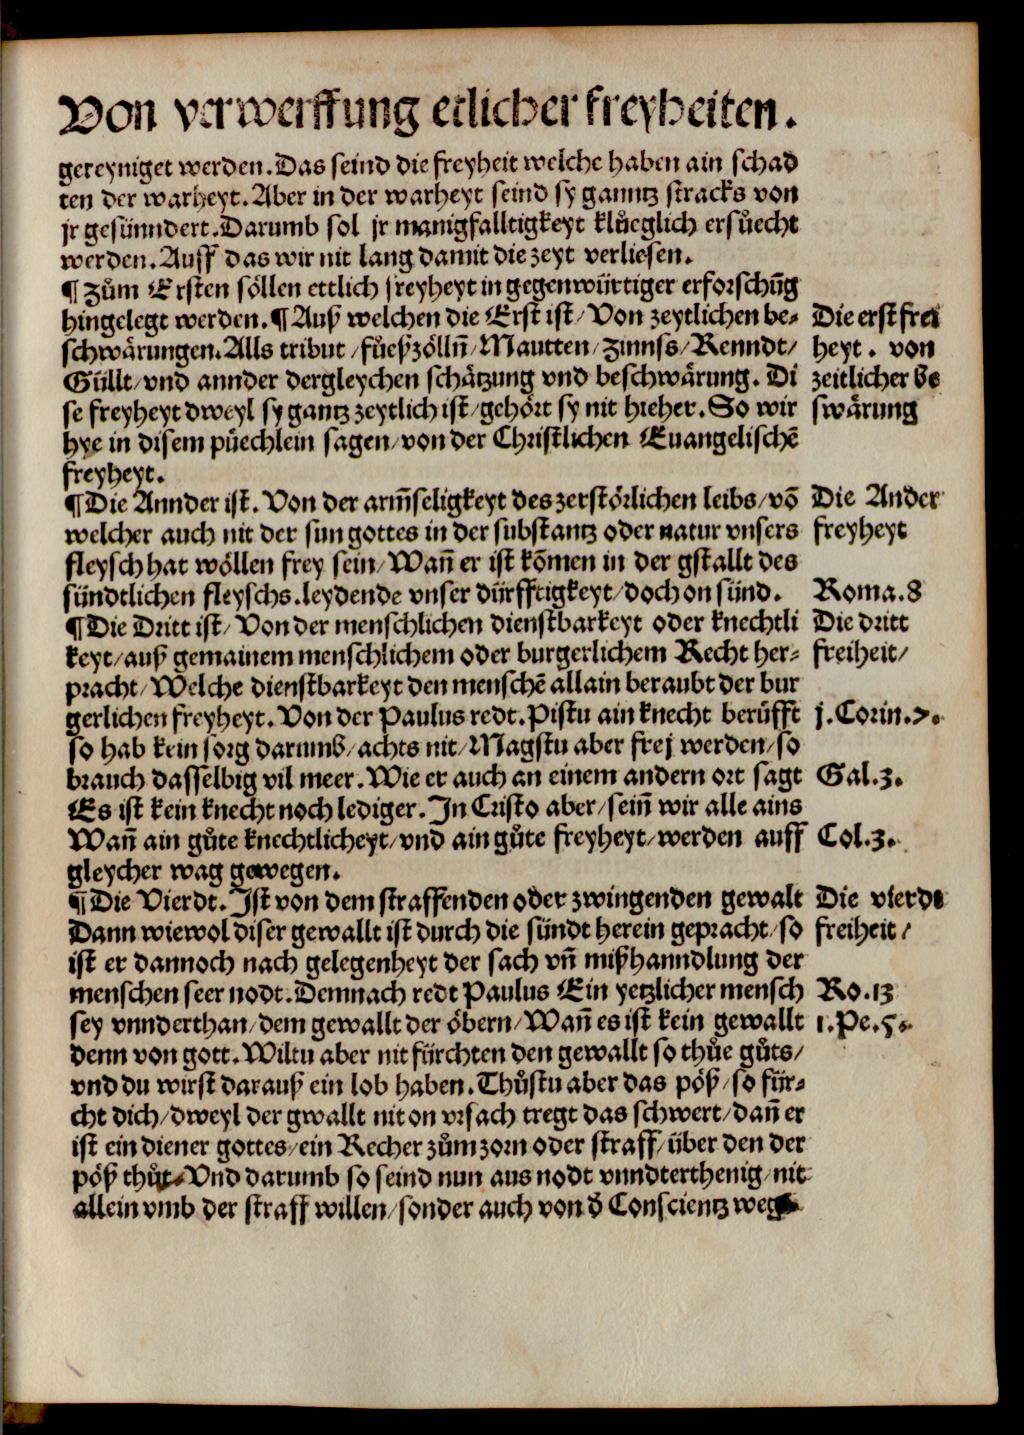 Von verwerffung etlicher freyheiten.
gereyniget werden. Das seind die freyheit welche haben ain schad
ten der warheyt. Aber in der warheyt seind sy ganntz stracks von
jr gesünndert. Darumb sol jr manigfalltigkeyt klůeglich ersůecht
werden. Auff das wir nit lang damit die zeyt verliesen.
¶ Zům Ersten söllen ettlich freyheyt in gegenwürtiger erforschūg
hingelegt werden. ¶ Auß welchen die Erst ist/ Von zeytlichen be⸗
schwärungen. Alls tribut/ fůeßzölln̄/ Mautten/ Zinnss/ Renndt/
Güllt/ vnd annder dergleychen schätzung vnd beschwärung. Di
se freyheyt dweyl sy gantz zeytlich ist/ gehört sy nit hieher. So wir
hye in disem půechlein sagen/ von der Christlichen Euangelischē
freyheyt.
Die erst frei
heyt. von
zeitlicher be
swärung
¶ Die Annder ist. Von der arm̄seligkeyt des zerstörlichen leibs/ vō
welcher auch nit der sun gottes in der substantz oder natur vnsers
fleysch hat wöllen frey sein/ Wan̄ er ist kōmen in der gstallt des
sündtlichen fleyschs. leydende vnser dürfftigkeyt/ doch on sünd.
Die Ander
freyheyt
Roma. 8
¶ Die Dritt ist/ Von der menschlichen dienstbarkeyt oder knechtli
keyt/ auß gemainem menschlichem oder burgerlichem Recht her⸗
pracht/ Welche dienstbarkeyt den menschē allain beraubt der bur
gerlichen freyheyt. Von der Paulus redt. Pistu ain knecht berüfft
so hab kein sorg darumb/ achts nit/ Magstu aber frej werden/ so
brauch dasselbig vil meer. Wie er auch an einem andern ort sagt
Es ist kein knecht noch lediger. In Cristo aber/ sein̄ wir alle ains
Wan̄ ain gůte knechtlicheyt/ vnd ain gůte freyheyt/ werden auff
gleycher wag gewegen.
Die dritt
freiheit/
j. Corin. 7.
Gal. 3.
Col. 3.
¶ Die Vierdt. Ist von dem straffenden oder zwingenden gewalt
Dann wiewol diser gewallt ist durch die sündt herein gepracht/ so
ist er dannoch nach gelegenheyt der sach vn̄ mißhanndlung der
menschen seer nodt. Demnach redt Paulus Ein yetzlicher mensch
sey vnnderthan/ dem gewallt der öbern/ Wan̄ es ist kein gewallt
denn von gott. Wiltu aber nit fürchten den gewallt so thůe gůts/
vnd du wirst darauß ein lob haben. Thůstu aber das pöß/ so für⸗
cht dich/ dweyl der gwallt nit on vrsach tregt das schwert/ dan̄ er
ist ein diener gottes/ ein Recher zům zorn oder straff/ über den der
pöß thůt. Vnd darumb so seind nun aus nodt vnndterthenig/ nit
allein vmb der straff willen/ sonder auch von d̄ Conscientz weg
Die vierde
freiheit/
Ro. 13
1. Pe. 5.